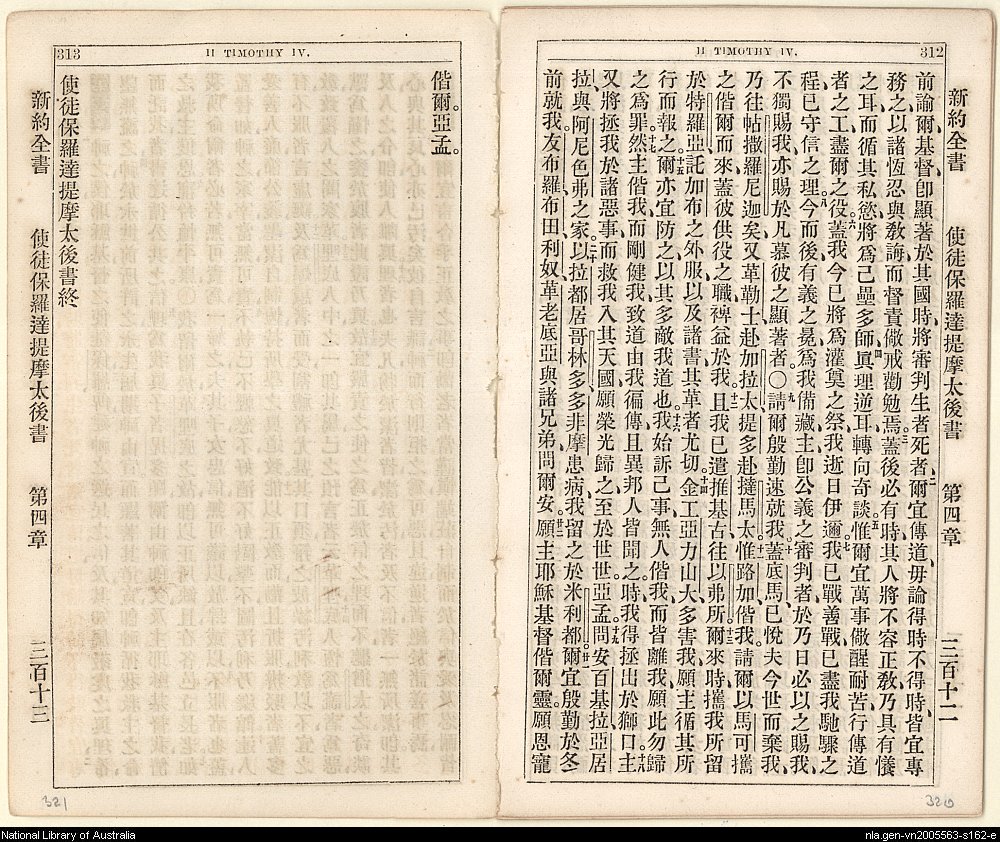 II TIMOTHY IV.
312
新約全書 使徒保羅達提摩太後書 第四章 三百十二
前諭爾基督卽顯著於其國時將審判生者死者、爾宜傳道、毋論得時不得時、皆宜專
務之、以諸恆忍與敎誨而督責儆戒勸勉焉。蓋後必有時、其人將不容正敎、乃具有儀
之耳、而循其私慾、將爲己壘多師、眞理逆耳、轉向奇談、惟爾宜萬事儆醒耐苦、行傳道
者之工、盡爾之役、蓋我今已將爲灌奠之祭、我逝日伊邇、我已戰善戰、已盡我馳驟之
程、已守信之理、今而後有義之冕、爲我備藏、主卽公義之審判者、於乃日必以之賜我、
不獨賜我、亦賜於凡慕彼之顯著者。〇請爾殷勤速就我、蓋底馬已悅夫今世而棄我、
乃往帖撒羅尼迦矣、又革勒士赴加拉太、提多赴撻馬太、惟路加偕我。請爾以馬可攜
之偕爾而來、蓋彼供役之職、裨益於我、且我已遣推基古往以弗所、爾來時攜我所留
於特羅亞託加布之外服、以及諸書、其革者尤切。金工亞力山大多害我、願主循其所
行而報之。爾亦宜防之、以其多敵我道也。我始訴己事、無人偕我、而皆離我、願此勿歸
之爲罪。然主偕我而剛健我、致道由我徧傳、且異邦人皆聞之、時我得拯出於獅口。主
又將拯我於諸惡事、而救我入其天國、願榮光歸之、至於世世、亞孟。問安百基拉亞居
拉、與阿尼色弗之家。以拉都居哥林多、多非摩患病、我留之於米利都。爾宜殷勤於冬
前就我、友布羅、布田、利奴、革老底亞與諸兄弟問爾安。願主耶穌基督偕爾靈、願恩寵
320
II TIMOTHY IV.
313
偕爾。亞孟。
使徒保羅達提摩太後書終
新約全書 使徒保羅達提摩太後書 第四章 三百十三
321
National Library of Australia
nla.gen-vn2005563-s162-e